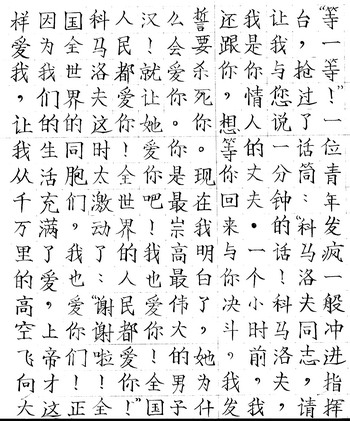 “等一等！”一位青年发疯一般冲进指挥
台，抢过了话筒：“科马洛夫同志，请
让我与您说一分钟的话！科马洛夫，
我是你情人的丈夫·一个小时前，我
还跟你，想等你回来与你决斗。我发
誓要杀死你。现在我明白了，她为什
么会爱你。你是最崇高最伟大的男子
汉！就让她爱你吧！我也爱你！全国
人民都爱你！全世界的人民都爱你！”
科马洛夫这时太激动了：“谢谢啦！全
国全世界的同胞们，我也爱你们！正
因为我们的生活充满了爱，上帝才这
样爱我，让我从千万里的高空飞向大